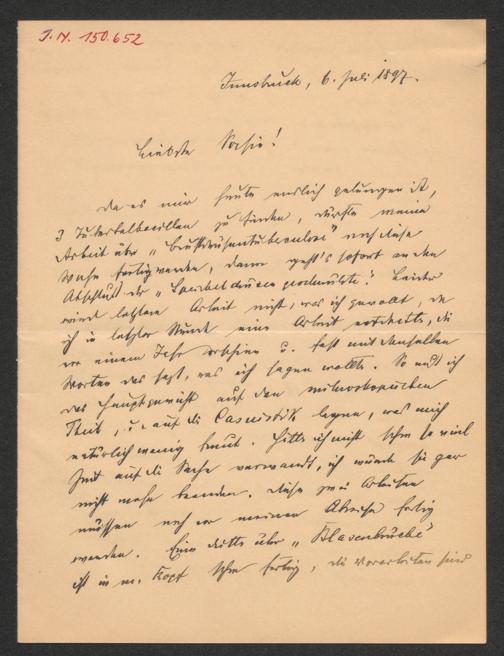 I. N. 150.652
Innsbruck, 6. Juli 1897.
Liebste Sofie!
Da es mir heute endlich gelungen ist,
3 Tuberkelbacillen zu finden, dürfte meine
Arbeit über „Brustdrüsentuberculose" noch diese
Woche fertig werden, dann geht's sofort an den
Abschluß der „Speicheldrüsen geschwülste". Leider
wird letztere Arbeit nicht, was ich gewollt, da
ich in letzter Stunde eine Arbeit entdeckte, die
vor einem Jahr erschien u. fast mit denselben
Worten das sagt, was ich sagen wollte. So muß ich
das Hauptgewicht auf den mikroskopischen
Theil, u. auf die Casuistik legen, was mich
natürlich wenig freut. Hätte ich nicht schon so viel
Zeit auf die Sache verwandt, ich würde sie gar
nicht mehr beenden. Diese zwei Arbeiten
müssen noch vor meiner Abreise fertig
werden. Eine dritte über „Blasenbrüche"
ist in m. Kopf schon fertig, die Vorarbeiten sind